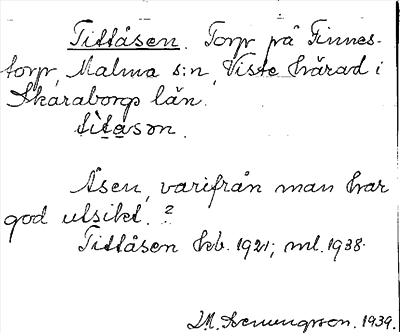 Tittåsen. Torp på Finnes-
torp, Malma s:n, Viste härad i
Skaraborgs län.
Åsen, varifrån man har
god utsikt. ?
Tittåsen kb. 1921; ml. 1938.
1939.